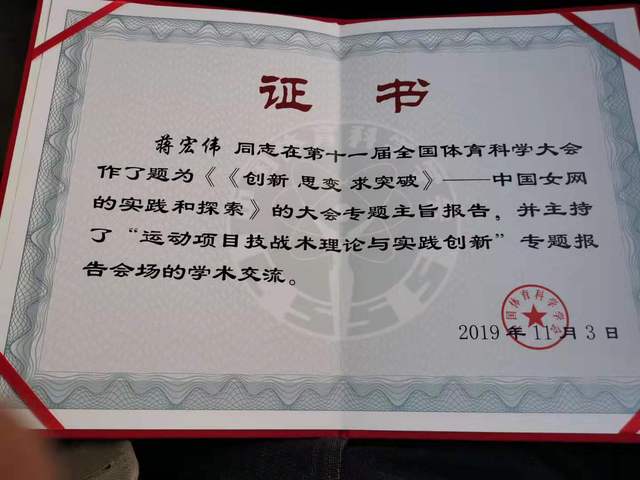 证 书
蒋宏伟 同志在第十一届全国体育科学大会
作了题为《《创新 思变 求突破》——中国女网
的实践和探索》的大会专题主旨报告，并主持
了“运动项目技战术理论与实践创新”专题报
告会场的学术交流。
国体育科学学会
2019 年 11 月 3 日